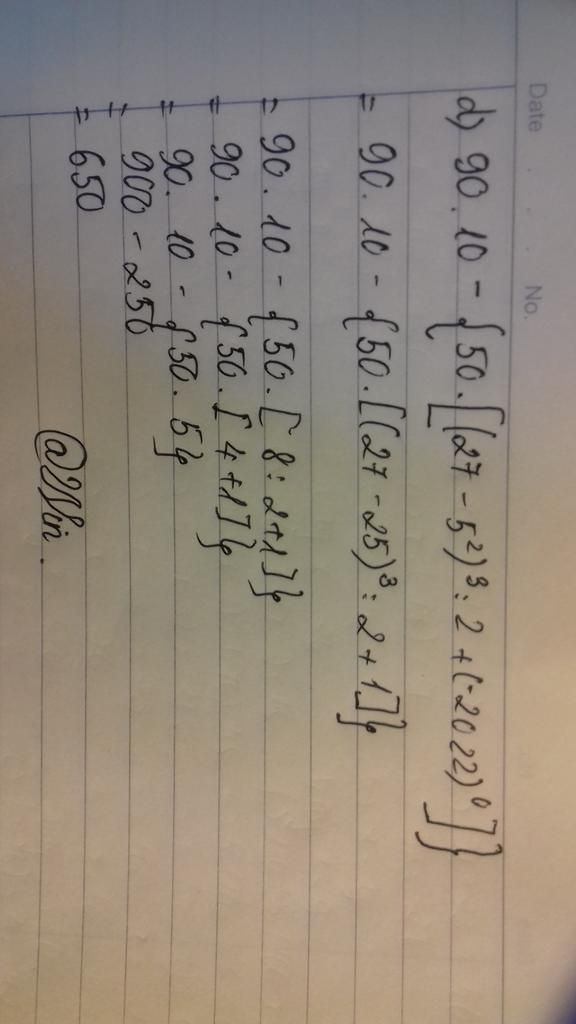 Date . . . No.
d) 90.10 - {50.[(27 - 5²)³ : 2 + (-2022)⁰]}
= 90.10 - {50.[(27 - 25)³ : 2 + 1]}
= 90.10 - {50.[8 : 2 + 1]}
= 90.10 - {50.[4 + 1]}
= 90.10 - {50.5}
= 900 - 250
= 650